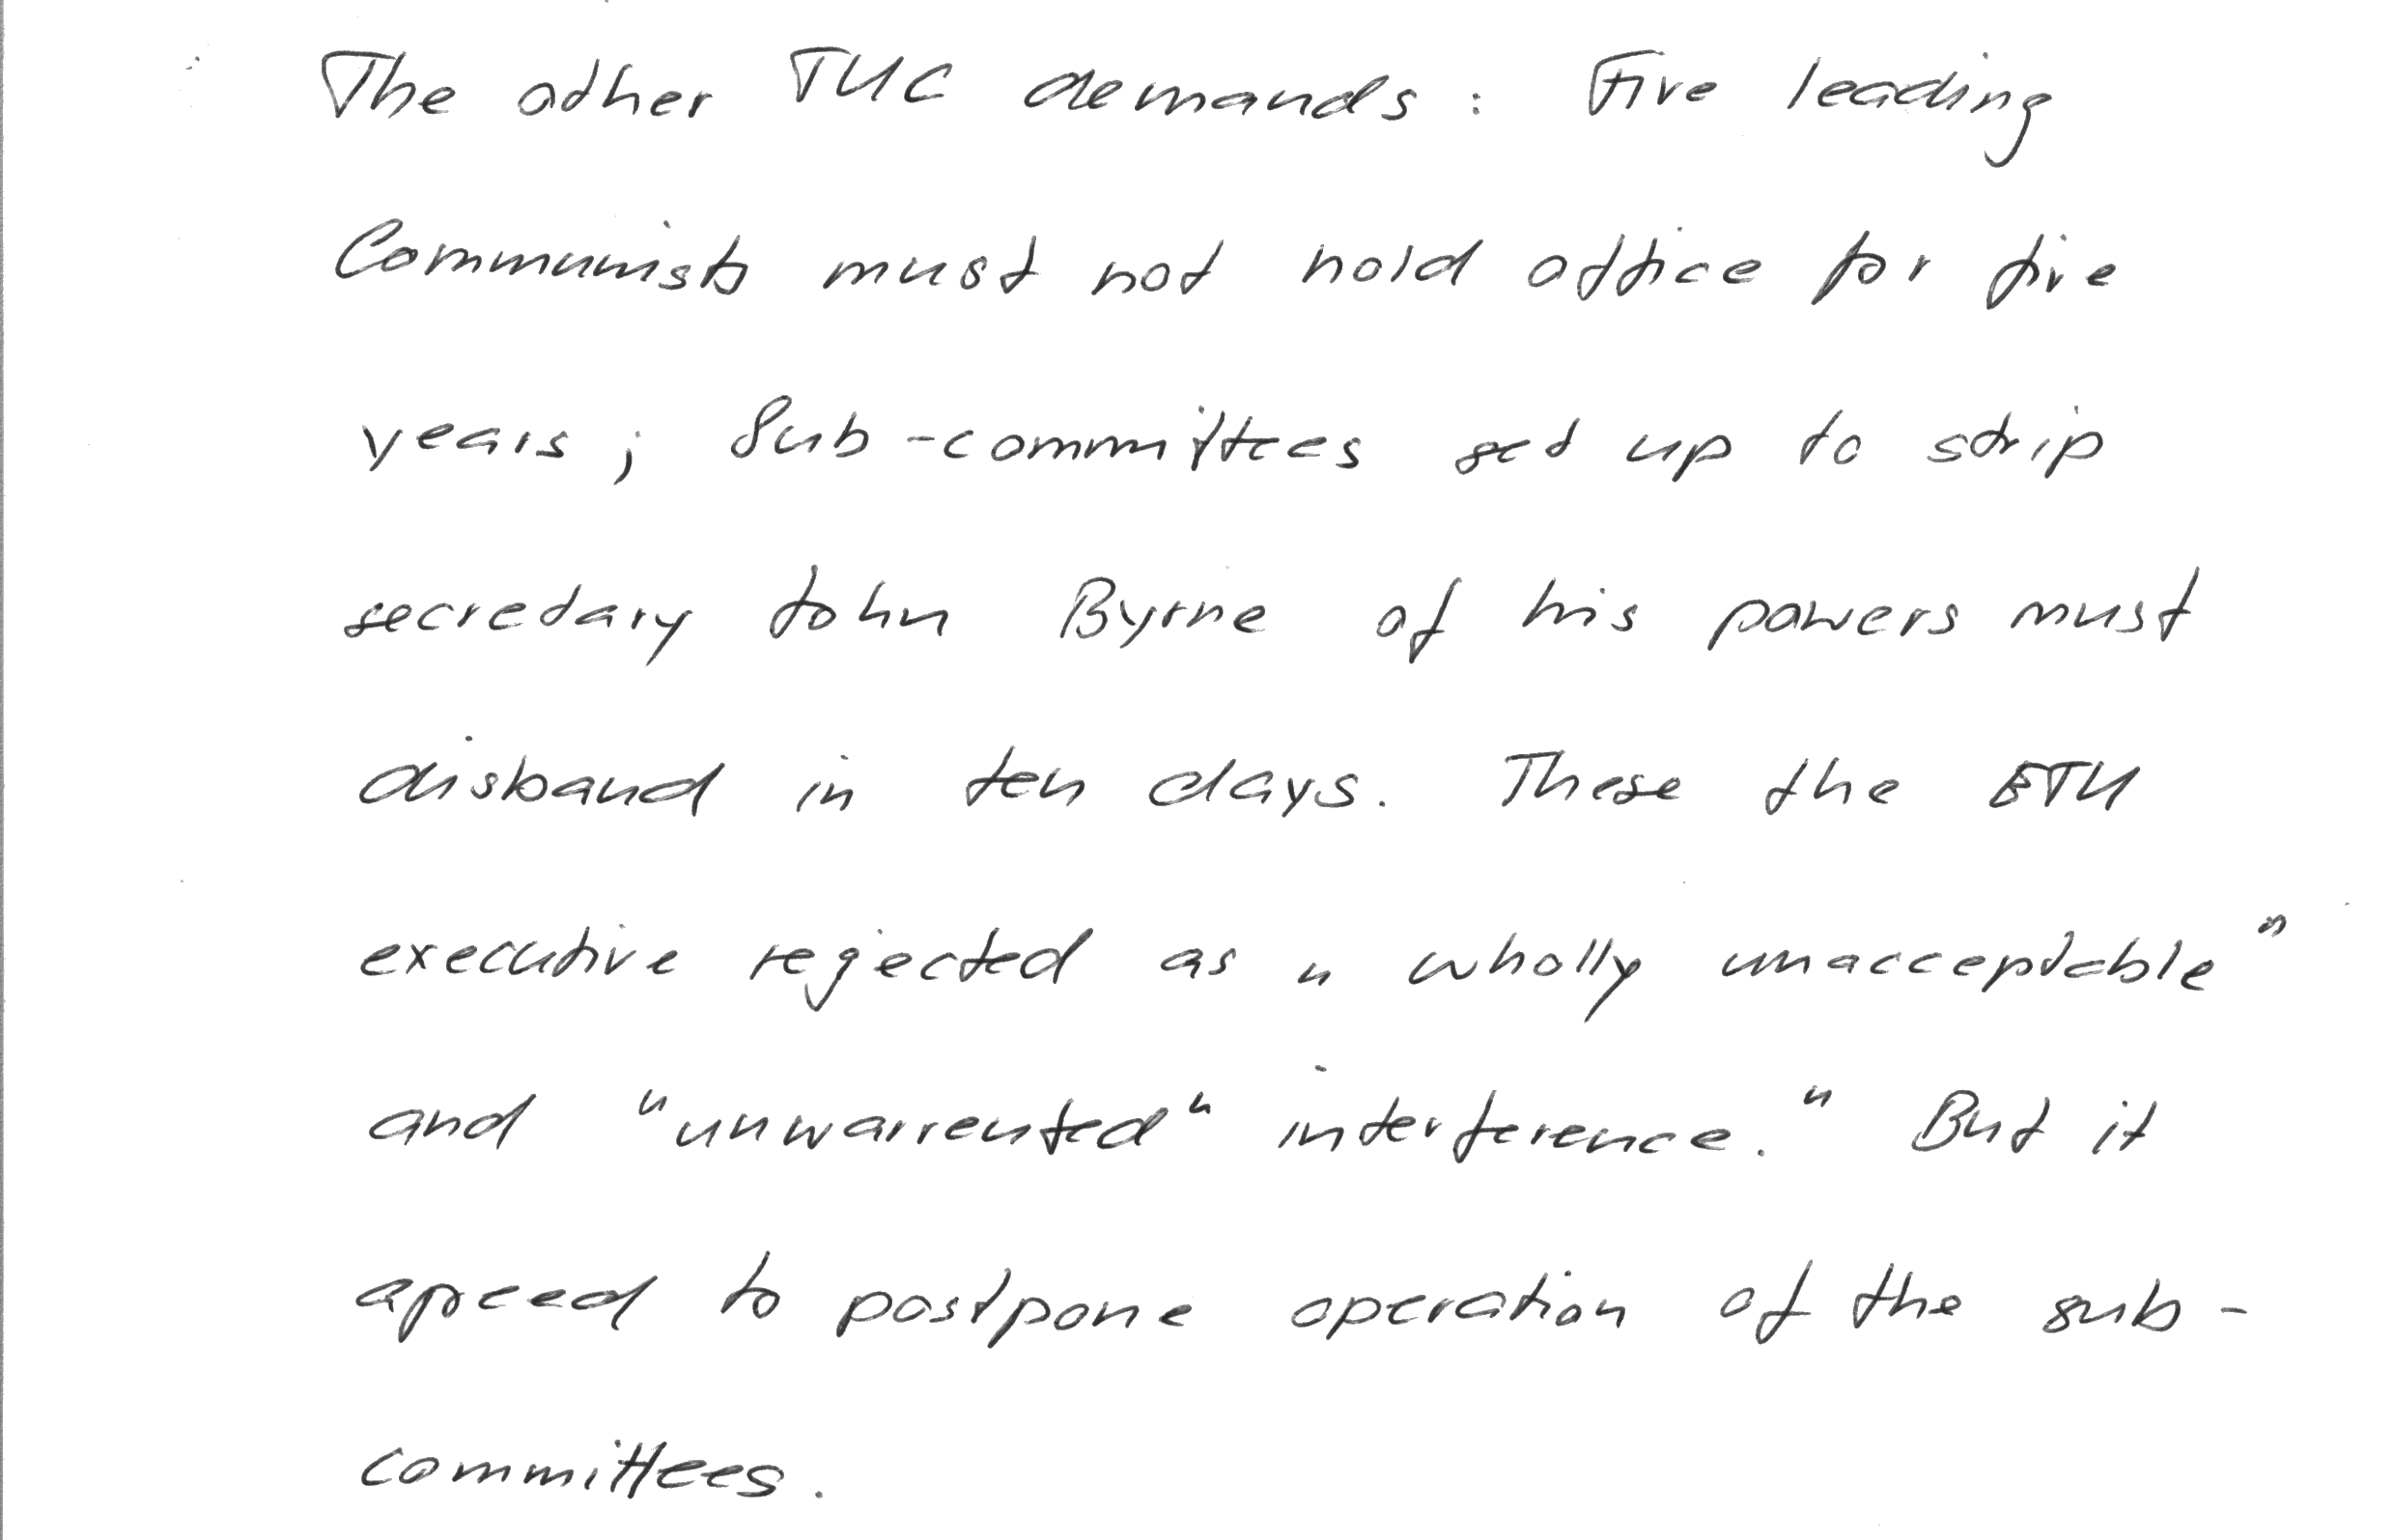 The other TUC demands : Five leading
Communists must not hold office for five
years ; Sub-committees set up to strip
secretary John Byrne of his powers must
disband in ten days. These the ETU
executive rejected as " wholly unacceptable"
and "unwarrented" interference." But it
agreed to postpone operation of the sub-
committees.